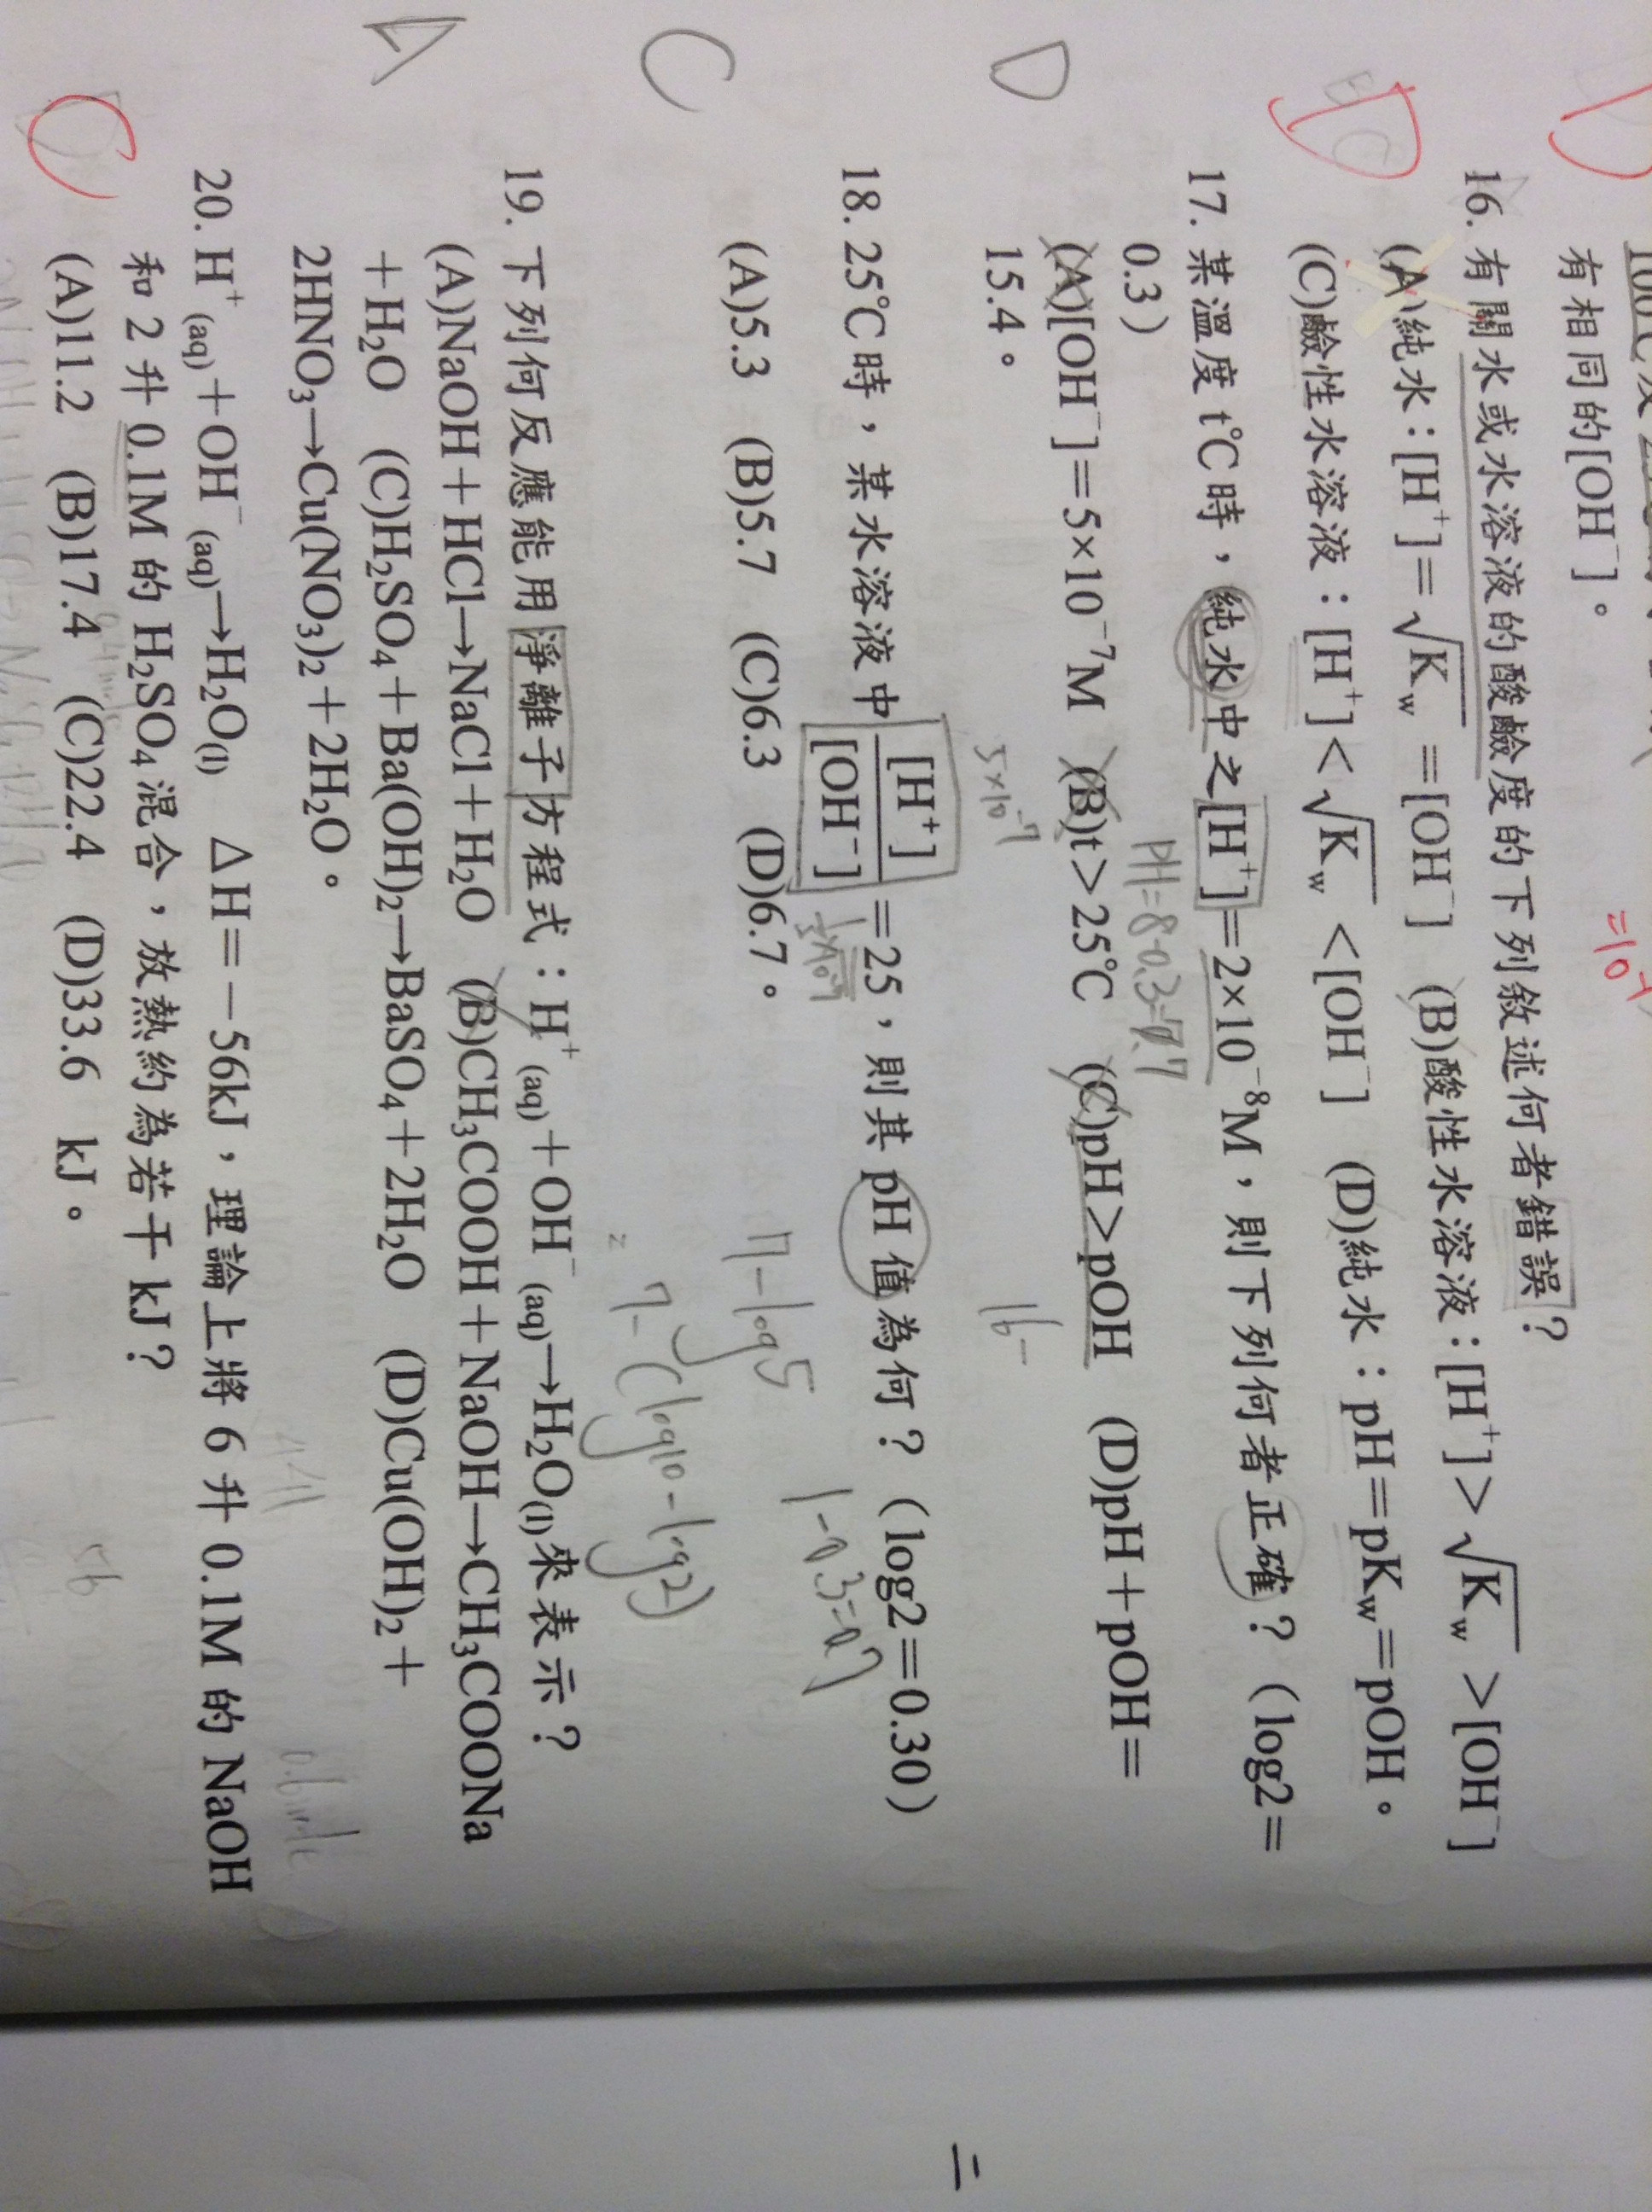 有相同的[OH⁻]。
=10
D
16. 有關水或水溶液的酸鹼度的下列敘述何者錯誤？
(A)純水：[H⁺]＝√Kw＝[OH⁻] (B)酸性水溶液：[H⁺]＞√Kw＞[OH⁻]
(C)鹼性水溶液：[H⁺]＜√Kw＜[OH⁻] (D)純水：pH＝pKw＝pOH。
D
17. 某溫度 t℃時，純水中之[H⁺]＝2×10⁻⁸M，則下列何者正確？（log2＝
0.3）
PH=8-0.3=7.7
(A)[OH⁻]＝5×10⁻⁷M (B)t＞25℃ (C)pH＞pOH (D)pH＋pOH＝
15.4。
5×10⁻⁷
16-
C
18. 25℃時，某水溶液中[H⁺]/[OH⁻]＝25，則其 pH 值為何？（log2＝0.30）
(A)5.3 (B)5.7 (C)6.3 (D)6.7。
7-log5
1-0.3=0.7
7-(log10-log2)
A
19. 下列何反應能用淨離子方程式：H⁺(aq)＋OH⁻(aq)→H₂O(l)來表示？
(A)NaOH＋HCl→NaCl＋H₂O (B)CH₃COOH＋NaOH→CH₃COONa
＋H₂O (C)H₂SO₄＋Ba(OH)₂→BaSO₄＋2H₂O (D)Cu(OH)₂＋
2HNO₃→Cu(NO₃)₂＋2H₂O。
C
20. H⁺(aq)＋OH⁻(aq)→H₂O(l) ΔH＝－56kJ，理論上將 6 升 0.1M 的 NaOH
和 2 升 0.1M 的 H₂SO₄混合，放熱約為若干 kJ？
(A)11.2 (B)17.4 (C)22.4 (D)33.6 kJ。
56
二